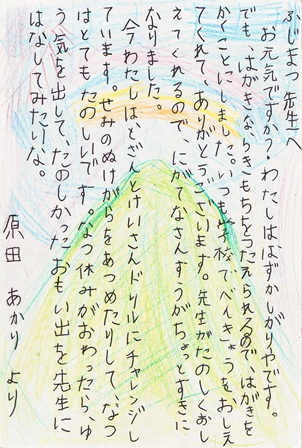 ふじまつ先生へ
お元気ですか？わたしははずかしがりやです。
でも、はがきならきもちをつたえられるのではがきを
かくことにしました。いつも学校でべんきょうをおしえ
てくれて、ありがとうございます。先生がたのしくおし
えてくれるので、にがてなさんすうがちょっとすきに
なりました。
今わたしはどざんとけいさんドリルにチャレンジし
ています。せみのぬけがらをあつめたりして、なつ
はとてもたのしいです。なつ休みがおわったら、ゆ
う気を出して、たのしかったおもい出ちを先生に
はなしてみたいな。
原田 あかり より